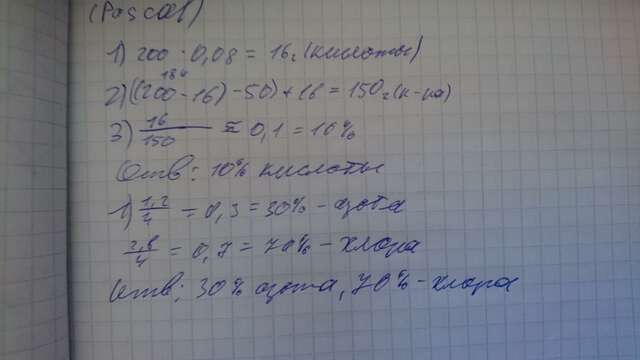 (Pascal)
1) 200 · 0,08 = 16г (кислоты)
184
2) ((200-16) - 50) + 16 = 150г (к-та)
3) 16/150 ≈ 0,1 = 10%
Отв: 10% кислоты
1) 1,2/4 = 0,3 = 30% - азота
2,8/4 = 0,7 = 70% - хлора
Отв: 30% азота, 70% - хлора